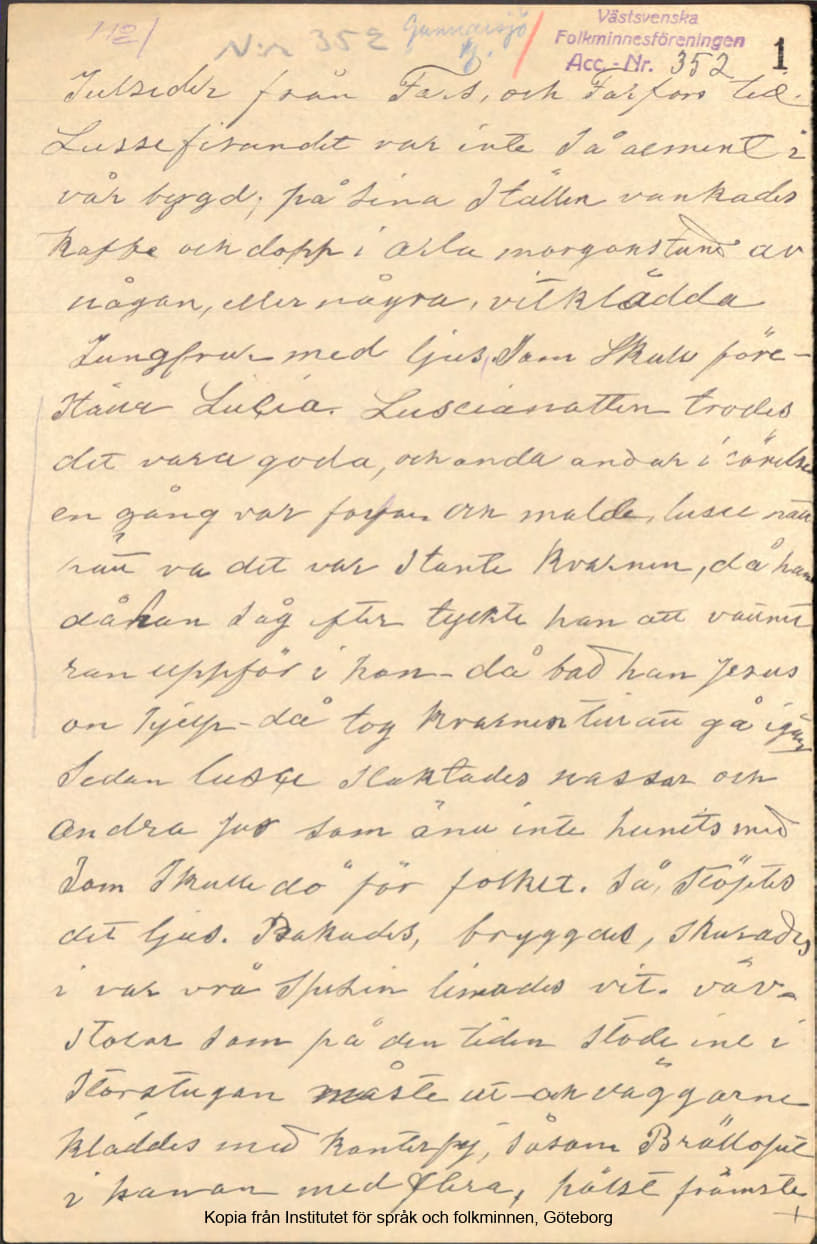 112/
N:r 352 Gunnarsjö
Västsvenska
Folkminnesföreningen
Acc.-Nr. 352
1
Julseder från Fars, och Farfars tid.
Lussefirandet var inte så alment i
vår bygd; på sina ställen vankades
Kaffe och dopp i arla morgonstund av
någon, eller några, vitklädda
Jungfrur med ljus, som skulle före-
ställa Lucia. Luscianatten trodes
det vara goda, och onda andar i rörelse
en gång var farfar och malde, lusse natt
va det var stante Kvarnen, då han
då han såg efter tyckte han att vattnet
ran uppför i hon - då bad han Jesus
on hjelp - då tog Kvarnen till att gå igång
Sedan lusse slaktades nassar och
andra jur som änu inte hunits med
som skulle dö för folket. Så, stöptes
det ljus. Bakades, bryggdes, skurades
i var vrå Spisen limades vit. väv-
stolar som på den tiden stode ine i
storstugan måste ut och väggarne
kläddes med Konterfej, såsom Brölloput
i kanan med flera, hälst främste
Kopia från Institutet för språk och folkminnen, Göteborg